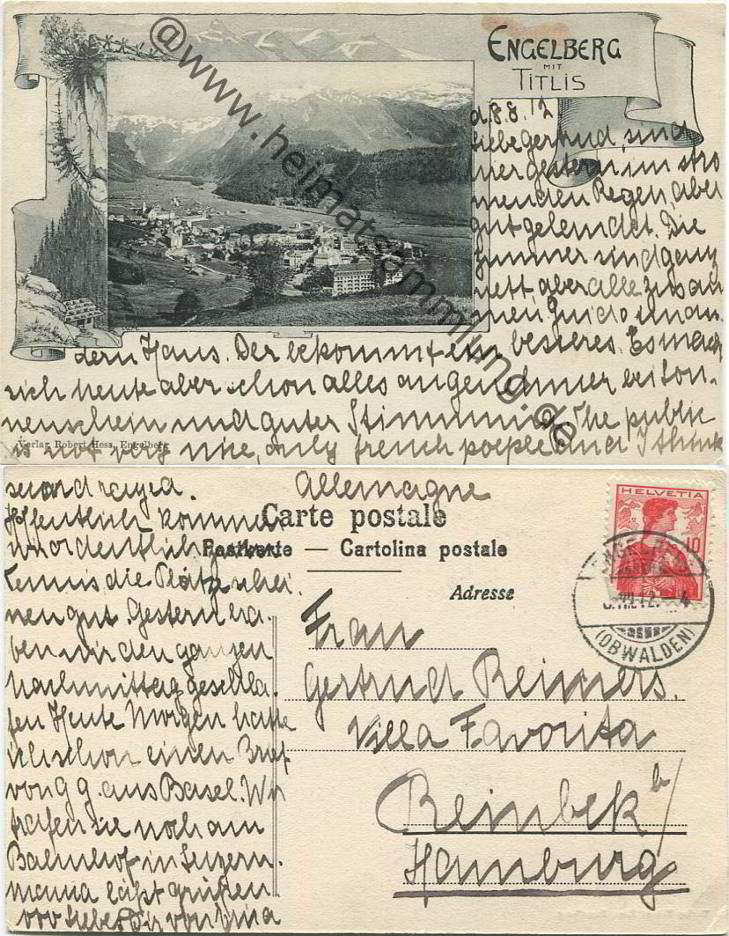 ENGELBERG
MIT
TITLIS
@www.heimatsammlung.de
d. 8.8.12
Liebe Gertrud, sind
hier gestern im strö
menden Regen, aber
gut gelandet. Die
Zimmer sind ganz
nett, aber alle zus. au
nen Guido im an.
dern Haus. Der bekommt ein besseres. Es mach
sich heute aber schon alles angenehmer bei Son.
nenschein und guter Stimmung. The public
is not very nice, only french poeple and I think
Verlag Robert Hess, Engelberg
second rayed.
Hoffentlich kommen
wir ordentlich zum
Tennis die Plätze schei.
nen gut. Gestern
ben wir den ganzen
Nachmittag
fen Heute Morgen hatte
ich schon einen Brief
von G G. aus Basel. Wir
trafen sie noch am
Bahnhof in Luzern.
Mama läßt grüßen
Dir von
Allemagne
Carte postale
Postkarte — Cartolina postale
Adresse
HELVETIA
10
ENGELBERG
(OBWALDEN)
Frau
Gertrud Reimers.
Villa Favorita
Reinbek b/
Hamburg